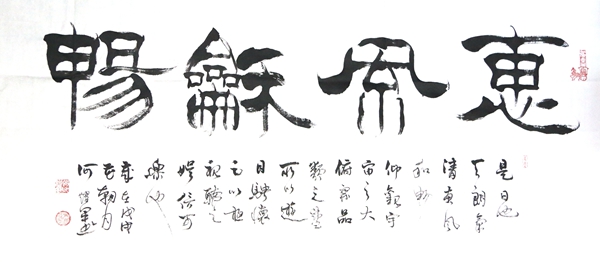 惠風龢暢
是日也
天朗氣
清惠風
和暢
仰觀宇
宙之大
俯察品
類之盛
所以遊
目騁懷
足以極
視聽之
娛信可
樂也
歲在戊戌
朝月
何